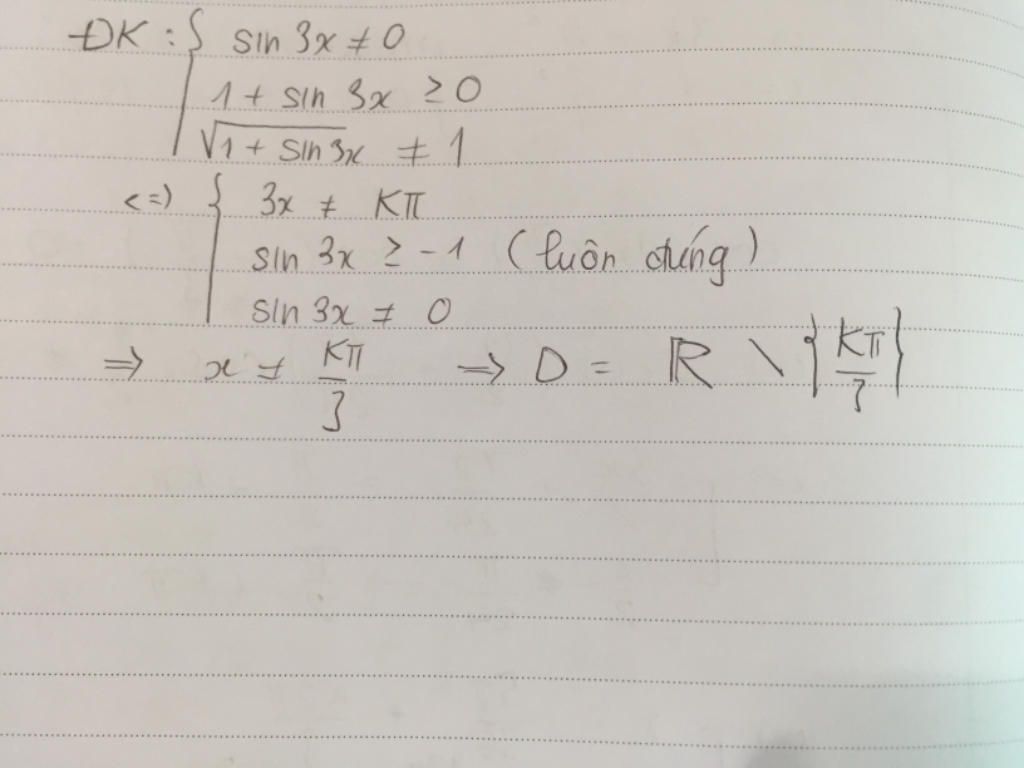 ĐK : { sin 3x ≠ 0
1 + sin 3x ≥ 0
√1 + sin 3x ≠ 1
<=> { 3x ≠ Kπ
sin 3x ≥ -1 (luôn đúng)
sin 3x ≠ 0
=> x ≠ Kπ/3 => D = ℝ \ {Kπ/3}